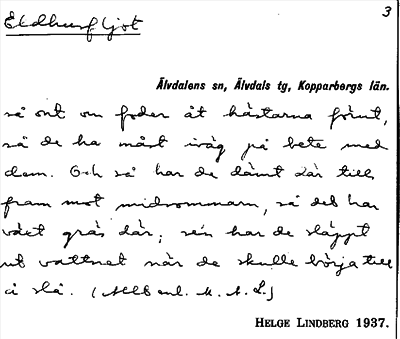 3
Älvdalens sn, Älvdals tg, Kopparbergs län.
så ont om foder åt hästarna förut,
så de ha måst iväg på bete med
dem. Och så har de dämt där till
fram mot midsommarn, så det har
växt gräs där; sen har de släppt
ut vattnet när de skulle börja till
å slå. (Allt enl. M. A. L.)
HELGE LINDBERG 1937.